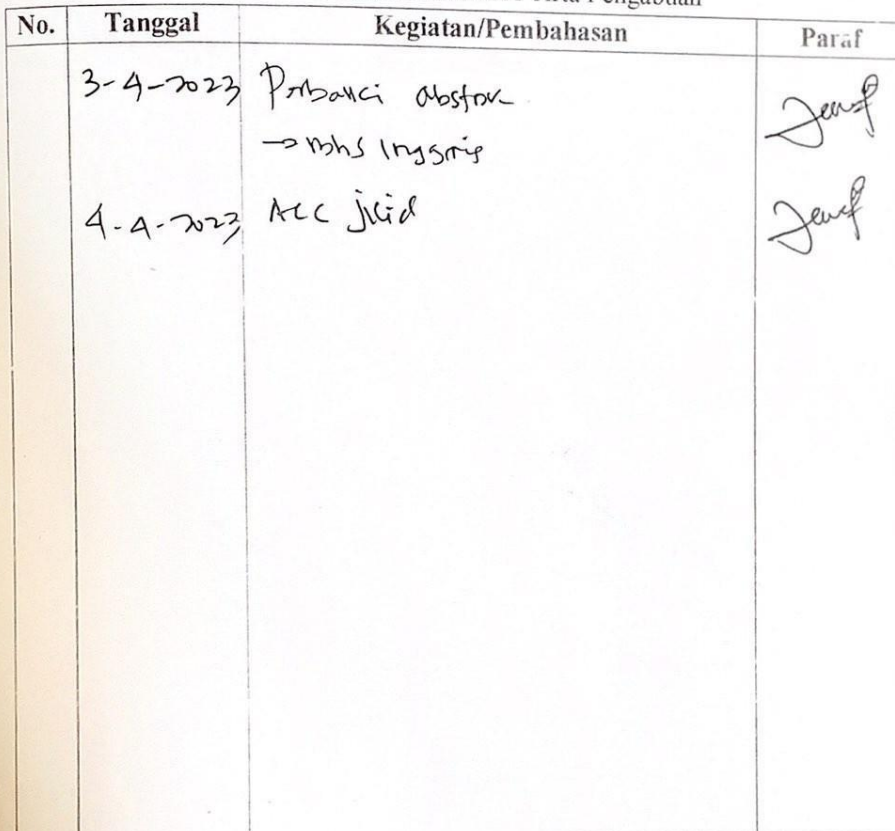 No. Tanggal Kegiatan/Pembahasan Paraf
3-4-2023 Perbaiki abstrak
→ bhs Inggris
4-4-2023 ACC jilid